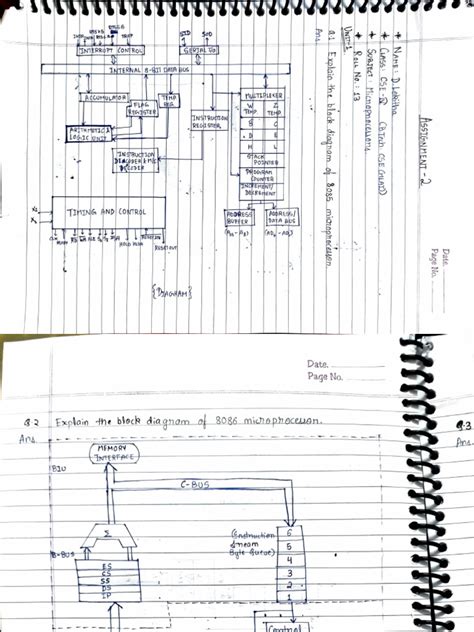 ASSIGNMENT - 2
Date
Page No.
★ NAME: D. Lakitha
★ CLASS: CSE-D
★ SUBJECT: Microprocessors
★ ROLL No.: 13
UNIT-1
Q.1 Explain the block diagram of 8085 microprocessor
SID
SOD
INTERRUPT CONTROL
SERIAL I/O
INTERNAL 8-BIT DATA BUS
ACCUMULATOR
TEMP REG.
FLAG REGISTER
ARITHMETIC & LOGIC UNIT
INSTRUCTION REGISTER
INSTRUCTION DECODER & M/C DECODER
MULTIPLEXER
W Z
TEMP. TEMP.
B C
D E
H L
STACK POINTER
PROGRAM COUNTER
INCREMENT/ DECREMENT
ADDRESS BUFFER
ADDRESS/ DATA BUS
TIMING AND CONTROL
X₁
X₂
HOLD
RESET OUT
{DIAGRAM}
Date.
Page No.
Q.2 Explain the block diagram of 8086 microprocessor.
Ans.
Q.3
Ans.
MEMORY
INTERFACE
BIU
C-BUS
Σ
B-BUS
ES
CS
SS
DS
IP
(Instruction
stream
Byte Queue)
6
5
4
3
2
1
Control